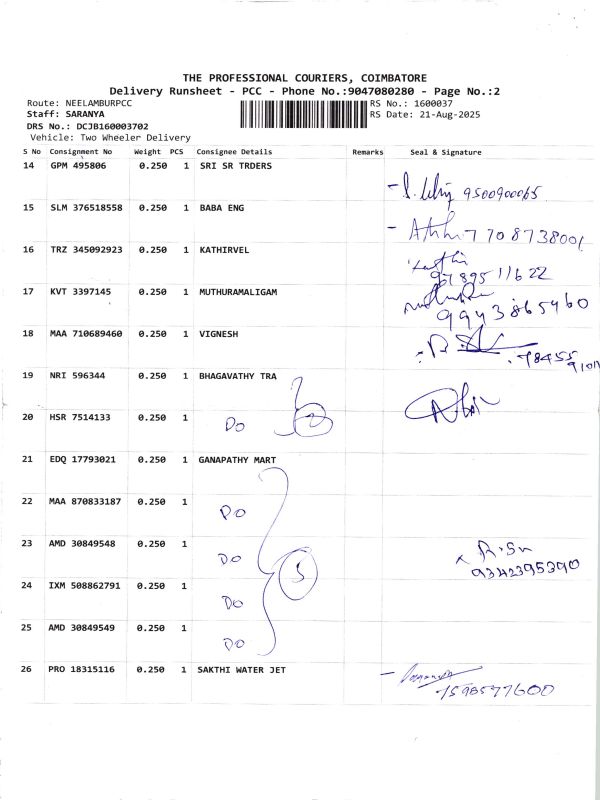 THE PROFESSIONAL COURIERS, COIMBATORE
Delivery Runsheet - PCC - Phone No.:9047080280 - Page No.:2
Route: NEELAMBURPCC
RS No.: 1600037
Staff: SARANYA
RS Date: 21-Aug-2025
DRS No.: DCJB160003702
Vehicle: Two Wheeler Delivery
S No Consignment No Weight PCS Consignee Details Remarks Seal & Signature
14 GPM 495806 0.250 1 SRI SR TRDERS
9500900065
15 SLM 376518558 0.250 1 BABA ENG
7708738001
16 TRZ 345092923 0.250 1 KATHIRVEL
9789511622
17 KVT 3397145 0.250 1 MUTHURAMALIGAM
9943865960
18 MAA 710689460 0.250 1 VIGNESH
19 NRI 596344 0.250 1 BHAGAVATHY TRA
20 HSR 7514133 0.250 1 Do 2
21 EDQ 17793021 0.250 1 GANAPATHY MART
22 MAA 870833187 0.250 1 Do
23 AMD 30849548 0.250 1 Do
5
9342395390
24 IXM 508862791 0.250 1 Do
25 AMD 30849549 0.250 1 Do
26 PRO 18315116 0.250 1 SAKTHI WATER JET
7598577600